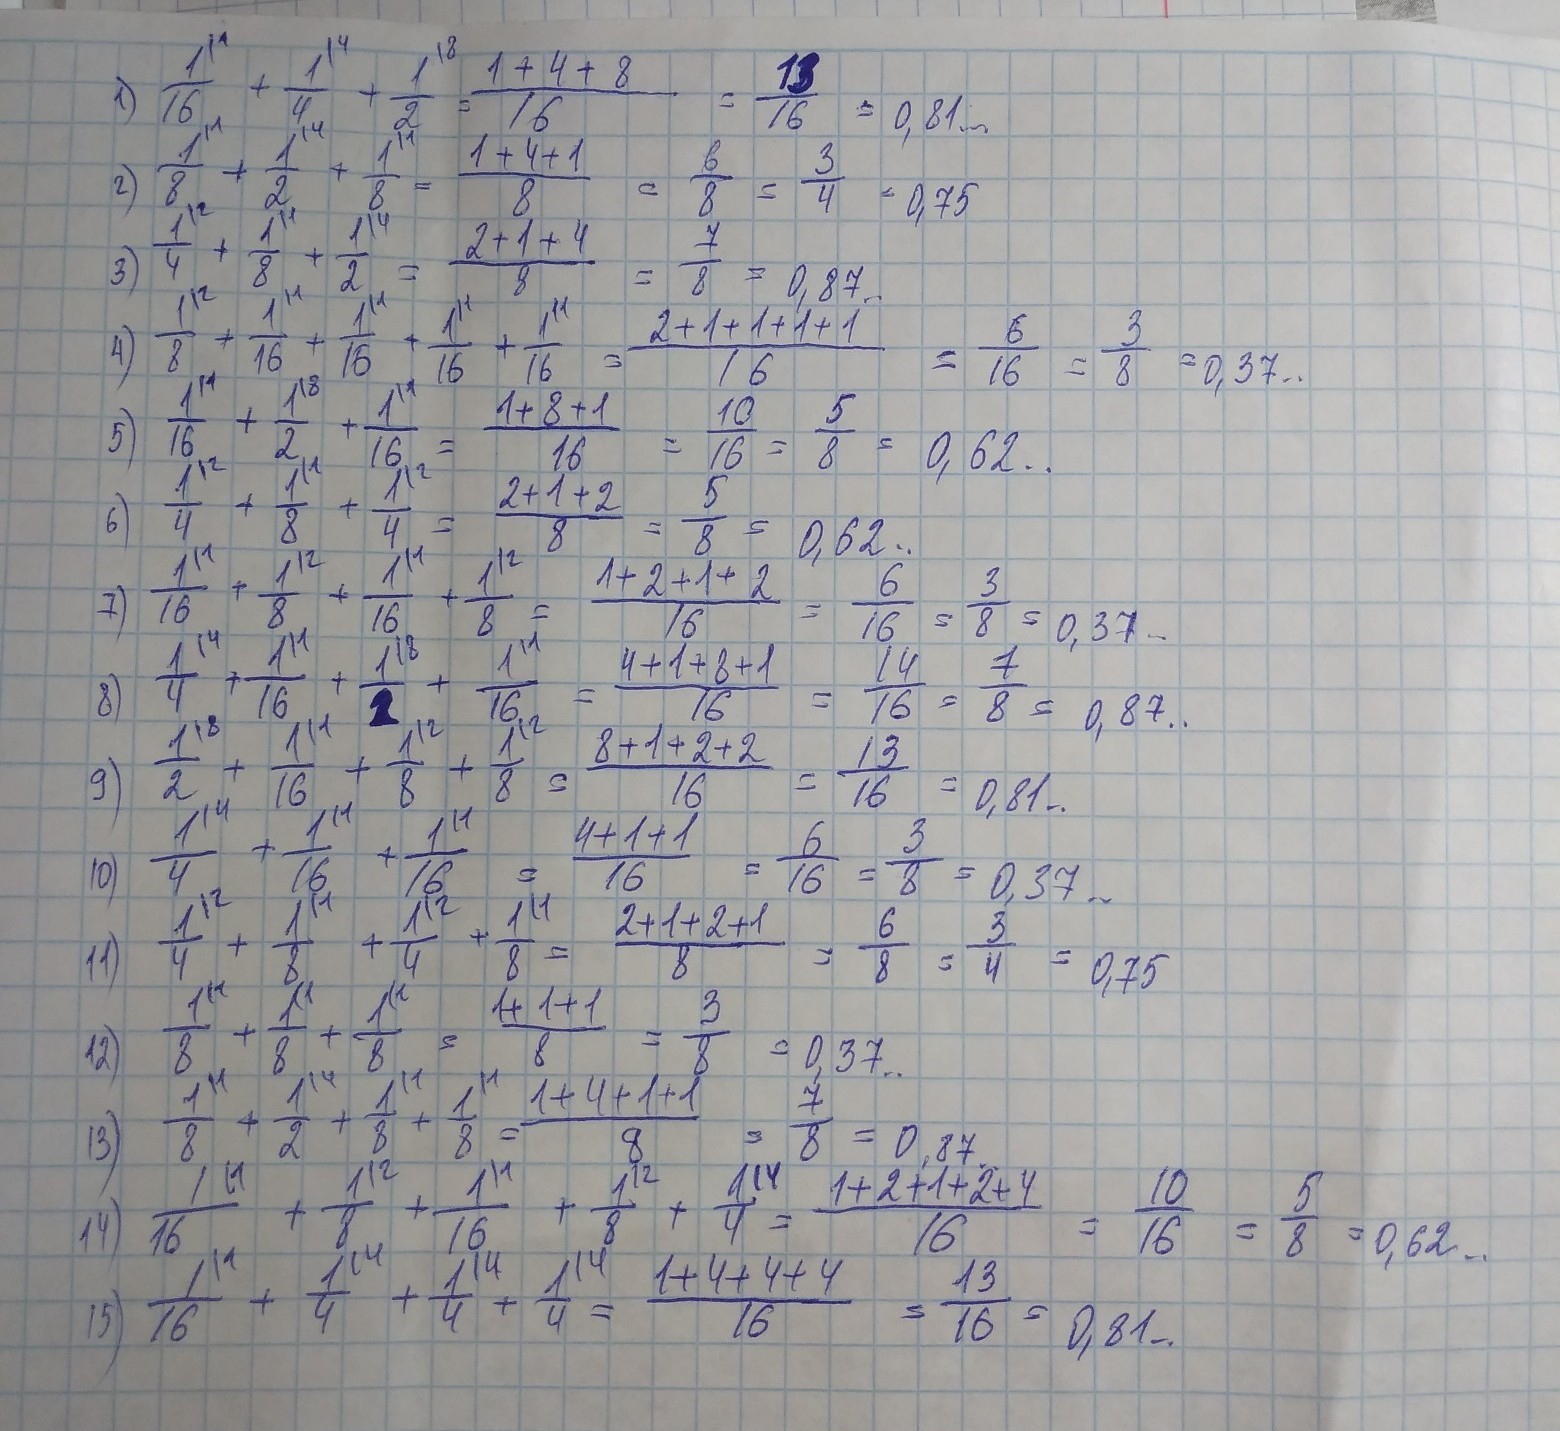 1) 1/16 |1 + 1/4 |4 + 1/2 |8 = (1+4+8)/16 = 13/16 = 0,81..
2) 1/8 |1 + 1/2 |4 + 1/8 |1 = (1+4+1)/8 = 6/8 = 3/4 = 0,75
3) 1/4 |2 + 1/8 |1 + 1/2 |4 = (2+1+4)/8 = 7/8 = 0,87..
4) 1/8 |2 + 1/16 |1 + 1/16 |1 + 1/16 |1 + 1/16 |1 = (2+1+1+1+1)/16 = 6/16 = 3/8 = 0,37..
5) 1/16 |1 + 1/2 |8 + 1/16 |1 = (1+8+1)/16 = 10/16 = 5/8 = 0,62..
6) 1/4 |2 + 1/8 |1 + 1/4 |2 = (2+1+2)/8 = 5/8 = 0,62..
7) 1/16 |1 + 1/8 |2 + 1/16 |1 + 1/8 |2 = (1+2+1+2)/16 = 6/16 = 3/8 = 0,37..
8) 1/4 |4 + 1/16 |1 + 1/2 |8 + 1/16 |1 = (4+1+8+1)/16 = 14/16 = 7/8 = 0,87..
9) 1/2 |8 + 1/16 |1 + 1/8 |2 + 1/8 |2 = (8+1+2+2)/16 = 13/16 = 0,81..
10) 1/4 |4 + 1/16 |1 + 1/16 |1 = (4+1+1)/16 = 6/16 = 3/8 = 0,37..
11) 1/4 |2 + 1/8 |1 + 1/4 |2 + 1/8 |1 = (2+1+2+1)/8 = 6/8 = 3/4 = 0,75
12) 1/8 |1 + 1/8 |1 + 1/8 |1 = (1+1+1)/8 = 3/8 = 0,37..
13) 1/8 |1 + 1/2 |4 + 1/8 |1 + 1/8 |1 = (1+4+1+1)/8 = 7/8 = 0,87..
14) 1/16 |1 + 1/8 |2 + 1/16 |1 + 1/8 |2 + 1/4 |4 = (1+2+1+2+4)/16 = 10/16 = 5/8 = 0,62..
15) 1/16 |1 + 1/4 |4 + 1/4 |4 + 1/4 |4 = (1+4+4+4)/16 = 13/16 = 0,81..